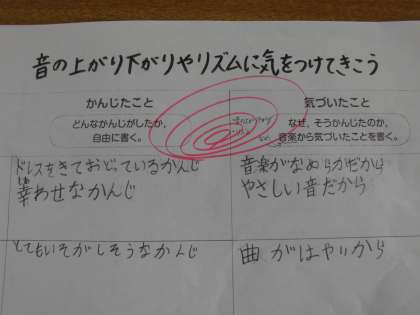 音の上がり下がりやリズムに気をつけてきこう
かんじたこと
気づいたこと
どんなかんじがしたか、
自由に書く。
なぜ、そうかんじたのか、
音楽から気づいたことを書く。
ドレスをきておどっているかんじ
幸わせなかんじ
音楽がなめらかだから
やさしい音だから
とてもいそがしそうなかんじ
曲がはやいから